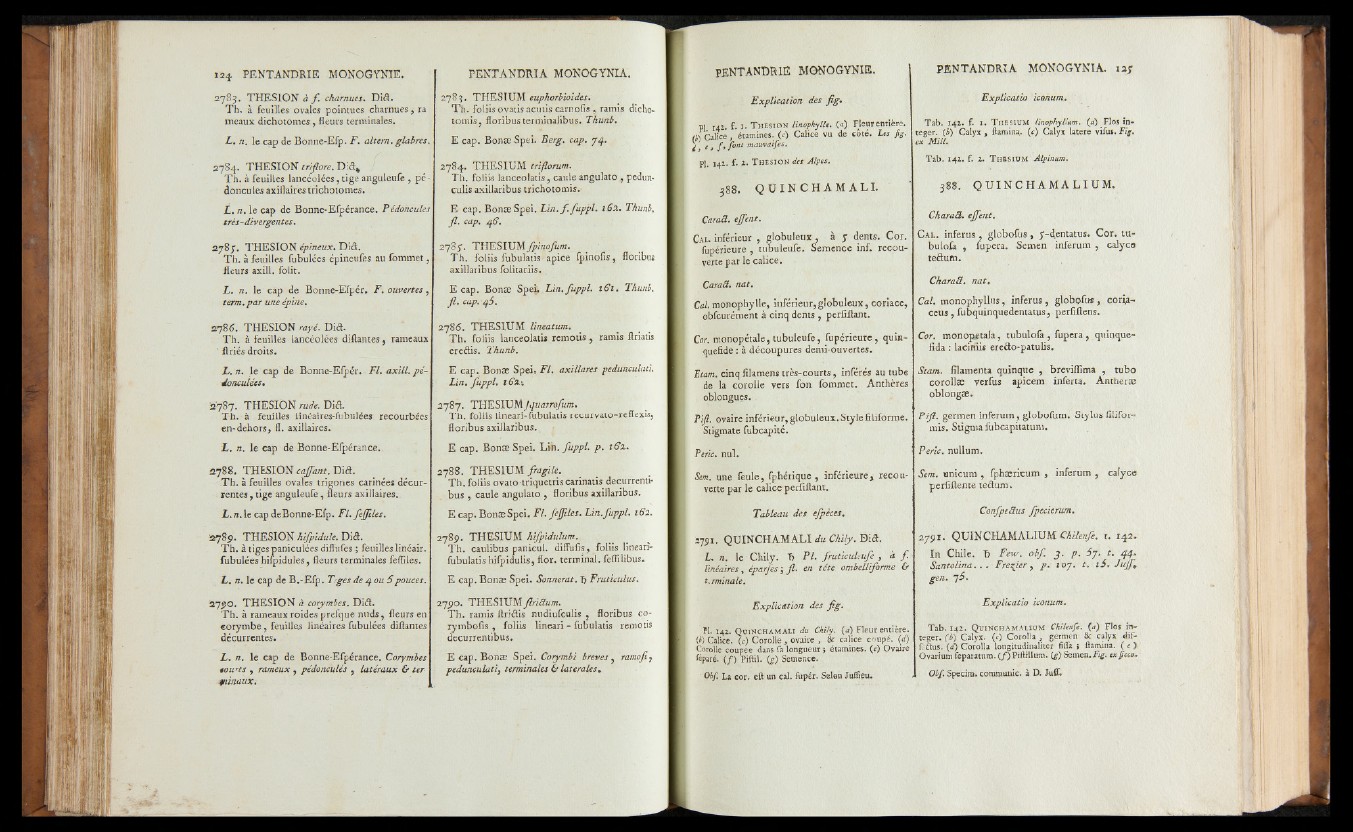 124 PENTANDRIE MONOGYNIE.
2783. THESION à f. charnues. Dict.
Th. à feuilles ovales pointues charnues, ra
meaux dichotomes, fleurs terminales.
L. n. le cap de Bonne-Esp. F. altern. glabres.
2784. THESION triflore. Dict.
Th. à feuilles lancéolées, tige anguleuse, pé-
doncules axillaires trichotomes.
L. n. le cap de Bonne-Espérance. Pédoncules
très-divergentes.
2785. THESION épineux. Dict.
Th. à feuilles subulées épineuses au sommet,
fleurs axill. solit.
L. n. le cap de Bonne-Espér. F. ouvertes,
term. par une épine.
2786. THESION rayé. Dict.
Th. à feuilles lancéolées distantes, rameaux
striés droits.
L. n. le cap de Bonne-Espér. Fl. axill. pé-
donculées.
2787. THESION rude. Dict.
Th. à feuilles linéaires-subulées recourbées
en-dehors, fl. axillaires.
L. n. le cap de Bonne-Espérance.
2788. THESION cassant. Dict.
Th. à feuilles ovales trigones carinées décur-
rentes, tige anguleuse, fleurs axillaires.
L. n. le cap de Bonne-Esp. Fl. sessiles.
2789. THESION hispidule. Dict.
Th. à tiges paniculées diffuses; feuilles linéair.
subulées hispidules, fleurs terminales sessiles.
L. n. le cap de B.-Esp. Tiges de 4 ou 5 pouces.
2790. THESION à corymbes. Dict.
Th. à rameaux roides presque nuds, fleurs en
corymbe, feuilles linéaires subulées distantes
décurrentes.
L. n. le cap de Bonne-Espérance. Corymbes
courts, rameux, pédonculés, latéraux & ter
minaux.
PENTANDRIA MONOGYNIA.
2783. THESIUM euphorbioides.
Th. foliis ovatis acutis carnosis, ramis dicho-
tomis, floribus terminalibus. Thunb.
E cap. Bonæ Spei. Berg. cap. 74.
2784. THESIUM triflorum.
Th. foliis lanceolatis, caule angulato, pedun-
culis axillaribus trichotomis.
E cap. Bonæ Spei. Lin. f. suppl. 162. Thunb.
fl. cap. 46.
2785. THESIUM spinosum.
Th. foliis subulatis apice spinosis, floribus
axillaribus solitariis.
E cap. Bonæ Spei. Lin. suppl. 161. Thunb.
fl. cap. 45.
2786. THESIUM lineatum.
Th. foliis lanceolatis remotis, ramis striatis
erectis. Thunb.
E cap. Bonæ Spei, Fl. axillares pedunculati.
Lin. suppl. 162.
2787. THESIUM squarrosum.
Th. foliis lineari-subulatis recurvato-reflexis,
floribus axillaribus.
E cap. Bonæ Spei. Lin. suppl. p. 162.
2788. THESIUM fragile.
Th. foliis ovato-triquetris carinatis decurrenti-
bus, caule angulato, floribus axillaribus.
E cap. Bonæ Spei. Fl. sessiles. Lin. suppl. 162.
2789. THESIUM hispidulum.
Th. caulibus panicul. diffusis, foliis lineari-
subulatis hispidulis, flor. terminal. sessilibus.
E cap. Bonæ Spei. Sonnerat. ♄ Fruticulus.
2790. THESIUM strictum.
Th. ramis strictis nudiusculis, floribus co-
rymbosis, foliis lineari-subulatis remotis
decurrentibus.
E cap. Bonæ Spei. Corymbi breves, ramosi,
pedunculati, terminales & laterales.
PENTANDRIE MONOGYNIE.
Explication des fig.
Pl. 142. f. 1. THESION linophylle. (a) Fleur entière.
(b) Calice, étamines. (c) Calice vu de côté. Les fig.
d, e, f, sont mauvaises.
Pl. 142. f. 2. THESION des Alpes.
388. QUINCHAMALI.
Caract. essent.
CAL. inférieur, globuleux, à 5 dents. Cor.
supérieure, tubuleuse. Semence inf. recou-
verte par le calice.
Caract. nat.
Cal. monophylle, inférieur, globuleux, coriace,
obscurément à cinq dents, persistant.
Cor. monopétale, tubuleuse, supérieure, quin-
quefide: à découpures demi-ouvertes.
Etam. cinq filamens très-courts, insérés au tube
de la corolle vers son sommet. Anthères
oblongues.
Pist. ovaire inférieur, globuleux. Style filiforme.
Stigmate subcapité.
Peric. nul.
Sem. une seule, sphérique, inférieure, recou-
verte par le calice persistant.
Tableau des espèces.
2791. QUINCHAMALI du Chily. Dict.
L. n. le Chily. ♄ Pl. fruticuleuse, à f.
linéaires, éparses; fl. en tête ombelliforme &
terminale.
Explication des fig.
Pl. 142. QUINCHAMALI du Chily. (a) Fleur entière.
(b) Calice. (c) Corolle, ovaire, & calice coupé. (d)
Corolle coupée dans sa longueur; étamines. (e) Ovaire
séparé. (f) Pistil. (g) Semence.
Obs. La cor. est un cal. supér. Selon Jussieu.
PENTANDRIA MONOGYNIA. 125
Explicatio iconum.
Tab. 142. f. 1. THESIUM linophyllum. (a) Flos in-
teger. (b) Calyx, stamina. (c) Calyx latere visus. Fig.
ex Mill.
Tab. 142. f. 2. THESIUM Alpinum.
388. QUINCHAMALIUM.
Charact. essent.
CAL. inferus, globosus, 5-dentatus. Cor. tu-
bulosa, supera. Semen inferum, calyce
tectum.
Charact. nat.
Cal. monophyllus, inferus, globosus, coria-
ceus, subquinquedentatus, persistens.
Cor. monopetala, tubulosa, supera, quinque-
fida: laciniis erecto-patulis.
Stam. filamenta quinque, brevissima, tubo
corollæ versus apicem inserta. Antheræ
oblongæ.
Pist. germen inferum, globosum. Stylus filifor-
mis. Stigma subcapitatum.
Peric. nullum.
Sem. unicum, sphæricum, inferum, calyce
persistente tectum.
Conspectus specierum.
2791. QUINCHAMALIUM Chilense, t. 142.
In Chile. ♄ Few. obs. 3. p. 57. t. 44.
Santolina... Frezier, p. 107. t. 15. Juss.
gen. 75.
Explicatio iconum.
Tab. 142. QUINCHAMALIUM Chilense. (a) Flos in-
teger. (b) Calyx. (c) Corolla, germen & calyx dis-
sectus. (d) Corolla longitudinaliter fissa; stamina. (e)
Ovarium separatum. (f) Pistillum. (g) Semen. Fig. ex sicco.
Obs. Specim. communic. à D. Juss.